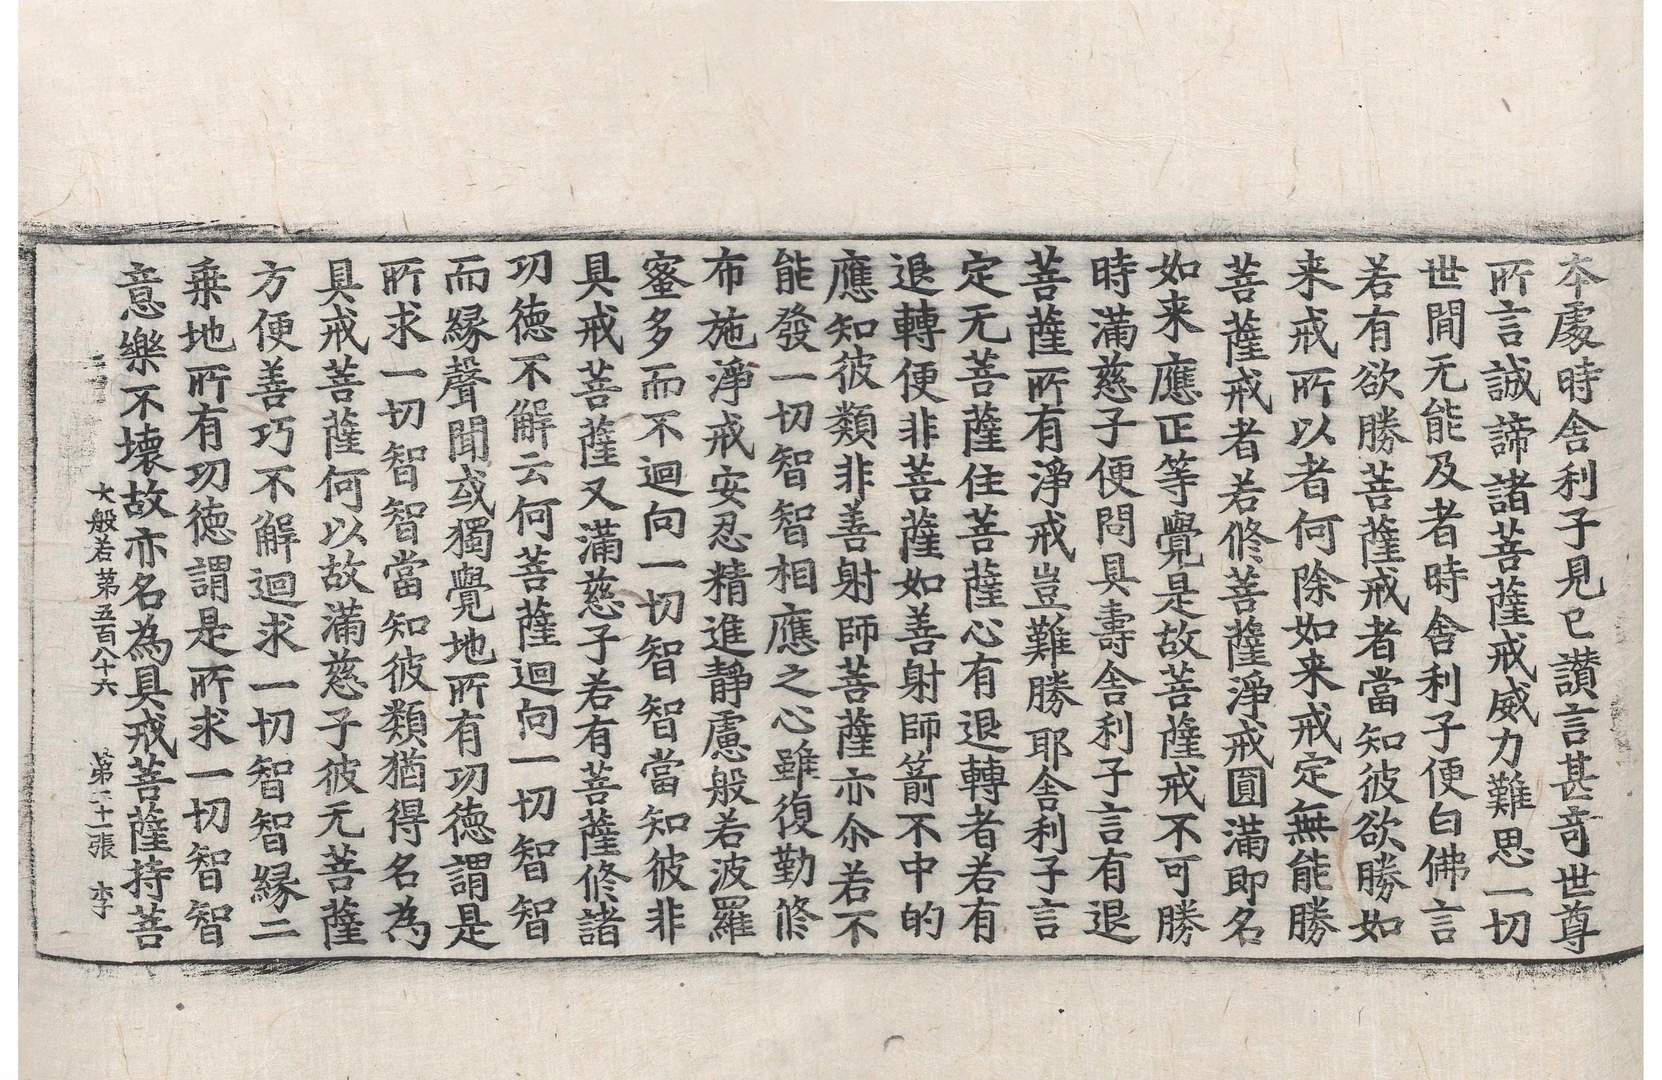 本處時舍利子見已讚言甚奇世尊
所言誠諦諸菩薩戒威力難思一切
世間无能及者時舍利子便白佛言
若有欲勝菩薩戒者當知彼欲勝如
来戒所以者何除如来戒定無能勝
菩薩戒者若修菩薩淨戒圓滿即名
如来應正等覺是故菩薩戒不可勝
時滿慈子便問具壽舍利子言有退
菩薩所有淨戒豈難勝耶舍利子言
定无菩薩住菩薩心有退轉者若有
退轉便非菩薩如善射師箭不中的
應知彼類非善射師菩薩亦尒若不
能發一切智智相應之心雖復勤修
布施淨戒安忍精進靜慮般若波羅
蜜多而不迴向一切智智當知彼非
具戒菩薩又滿慈子若有菩薩修諸
功德不解云何菩薩迴向一切智智
而緣聲聞或獨覺地所有功德謂是
所求一切智智當知彼類猶得名為
具戒菩薩何以故滿慈子彼无菩薩
方便善巧不解迴求一切智智緣二
乗地所有功德謂是所求一切智智
意樂不壞故亦名為具戒菩薩持菩
大般若第五百八十六 第二十一張 李